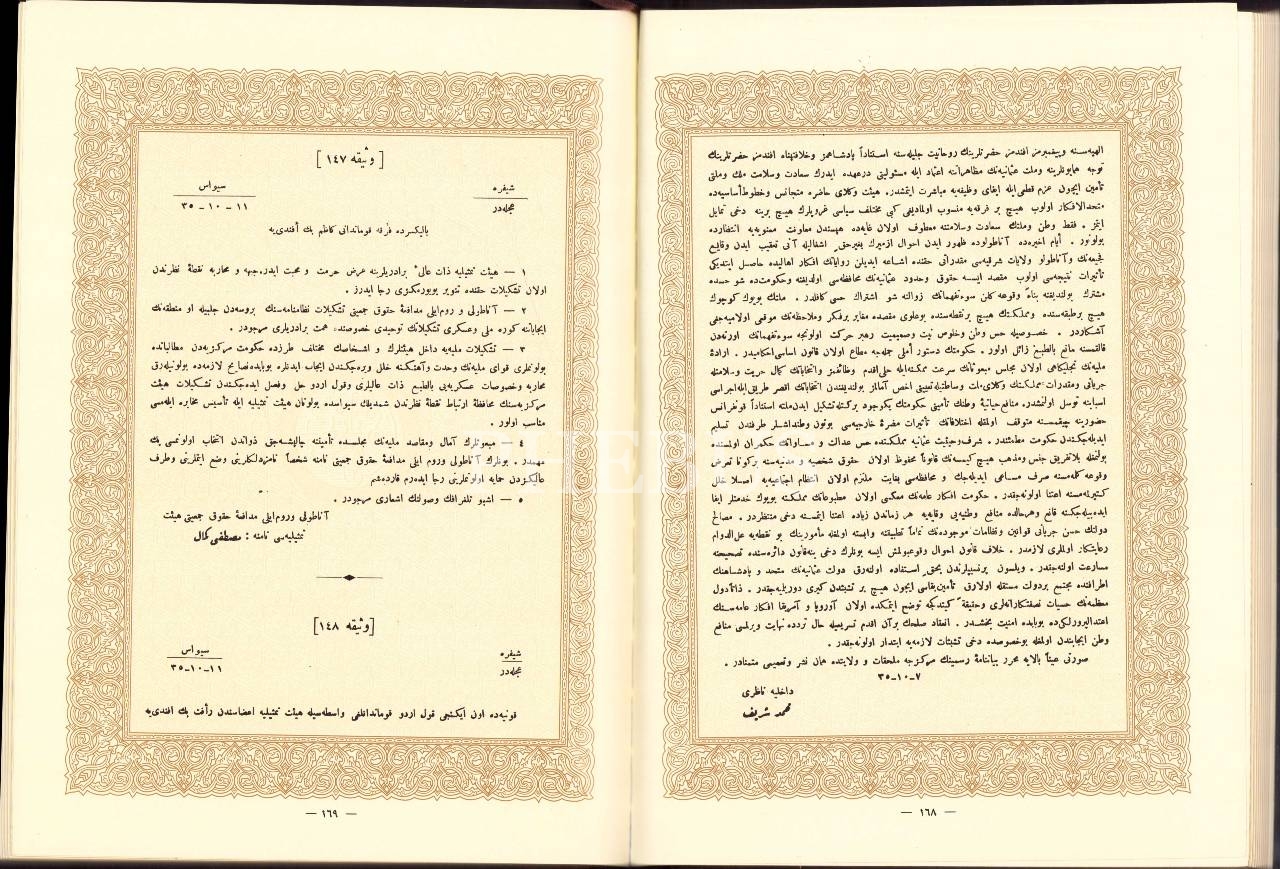 الهیه‌سنه وپیغمبرمز افندمز حضرتلرینك روحانیت جلیله‌سنه استناداً پادشاهمز وخلافتپناه افندمز حضرتلرینك
توجه همایونلرینه وملت عثمانیه‌نك مظاهرتنه اعتماد ایله مسئولیتی درعهده ایدرك سعادت وسلامت ملك وملتی
تأمین ایچون عزم قطعی ایله ایفای وظیفه‌یه مباشرت ایتمشدر. هیئت وکلای حاضره متجانس وخطوط‌اساسیه‌ده
متحدالافکار اولوب هیچ بر فرقه‌یه منسوب اولمادیغی کبی مختلف سیاسی غروپلرك هیچ برینه دخی تمایل
ایتمز . فقط وطن وملتك سعادت وسلامتنه معطوف اولان غایه‌ده هپسندن معاونت معنویه‌یه انتظارده
بولونور . أیام اخیره‌ده آناطولوده ظهور ایدن احوال ازمیرك بغیرحق اشغالیله آنی تعقیب ایدن وقایع
فجیعه‌نك وآناطولو ولایات شرقیه‌سی مقدراتی حقنده اشاعه ایدیلن روایاتك افکار اهالیده حاصل ایتدیکی
تأثیرات نتیجه‌سی اولوب مقصد ایسه حقوق وحدود عثمانیه‌نك محافظه‌سی اولدیغنه وحکومت‌ده شو حسده
مشترك بولندیغنه بناءً وقوعه کلن سوءتفهماتك زوالنه شو اشتراك حسی کافلدر . ملتك بویوك کوچوك
هیچ برطبقه‌سنده ومملکتك هیچ برنقطه‌سنده بوعلوی مقصده مغایر برفکر وملاحظه‌نك موقعی اولامیه‌جغی
آشکاردر . خصوصیله حس وطن وخلوص نیت وصمیمیت رهبر حرکت اولونجه سوءتفهماتك اورته‌دن
قالقمسنه مانع بالطبع زائل اولور . حکومتك دستور أملی جمله‌جه مطاع اولان قانون اساسی احکامیدر . ارادۀ
ملیه‌نك تجلیکاهی اولان مجلس مبعوثانك سرعت ممکنه‌ایله جلبی‌اقدم وظائفمز وانتخاباتك کمال حریت وسلامتله
جریانی ومقدرات مملکتك وکلای‌ملت وساطتیله‌تعیینی اخص آمالمز بولندیغندن انتخاباتك اقصر طریق‌ایله‌اجراسی
اسبابنه توسل اولنمشدر. منافع‌حیاتیۀ وطنك تأمینی حکومتك یکوجود برکتله‌تشکیل ایدن‌ملته استناداً قونفرانس
حضورینه چیقمسنه متوقف اولمغله اختلافاتك تأثیرات مضرۀ خارجیه‌سی بوتون وطنداشلر طرفندن تسلیم
ایدیله‌جکندن حکومت مطمئندر . شرف‌وحیثیت عثمانیه مملکتده حس عدالت و مساواتك حکمران اولمسنده
بولنمغله بلاتفریق جنس ومذهب هیچ‌کیمسه‌نك قانوناً محفوظ اولان حقوق شخصیه ومدنیه‌سنه برکونا تعرض
وقوعه کلمه‌مسنه صرف مساعی ایدیله‌جك و محافظه‌سی بغایت ملتزم اولان انتظام اجتماعیه‌یه اصلا خلل
کتیرلمه‌مسنه اعتنا اولنه‌جقدر. حکومت افکار عامه‌نك معکسی اولان مطبوعاتك مملکته بویوك خدمتلر ایفا
ایده‌بیله‌جکنه قانع وهرحالده منافع وطنیه‌یی وقایه‌یه هر زماندن زیاده اعتنا ایتمسنه دخی منتظردر . مصالح
دولتك حسن جریانی قوانین ونظامات موجوده‌نك تماماً تطبیقنه وابسته اولمغله مأمورینك بو نقطه‌یه علی‌الدوام
رعایتکار اولملری لازمدر . خلاف قانون احوال وقوعبولمش ایسه بونلرك دخی ینه‌قانون دائره‌سنده تصحیحنه
مسارعت اولنه‌جقدر. ویلسون پرنسیپلرندن بحق استفاده اولنه‌رق دولت عثمانیه‌نك متحد و پادشاهنك
اطرافنده مجتمع بردولت مستقله اولارق تأمین‌بقاسی ایچون هیچ بر تشبثدن کیری دوریلمیه‌جقدر. ذاتاًدول
معظمه‌نك حسیات نصفتکارانه‌لری وحقیقةً کیتدکجه توضح ایتمکده اولان آوروپا و آمریقا افکار عامه‌سنك
اعتدالپرورلکی‌ده بوبابده امنیت بخشدر. انعقاد صلحك برآن اقدم تسریعیله حال تردده نهایت ویرلمسی منافع
وطن ایجابندن اولمغله بوخصوصده دخی تشبثات لازمه‌یه ابتدار اولونه‌جقدر .
صورتی عیناً بالایه محرر بیاننامۀ رسمینك مرکزجه ملحقات و ولایتده همان نشر وتعمیمی متمنادر .
۷-۱۰-۳٥
داخلیه ناظری
محمد شریف
— ۱٦۸ —
[ وثیقه ۱٤۷ ]
شیفره
سیواس
عجله‌در
۱۱ - ۱۰ - ۳٥
بالیکسرده فرقه قوماندانی کاظم بك أفندی‌یه
۱ — هیئت تمثیلیه ذات عالیٔ برادریلرینه عرض حرمت و محبت ایدر.جبهه و محاربه نقطۀ نظرندن
اولان تشکیلات حقنده تنویر بویورمکزی رجا ایدرز .
۲ — آناطولی و روم‌ایلی مدافعۀ حقوق جمعیتی تشکیلات نظامنامه‌سنك بروسه‌دن جلبیله او منطقه‌نك
ایجاباتنه کوره ملی وعسکری تشکیلاتك توحیدی خصوصنده همت برادریلری مرجودر .
۳ — تشکیلات ملیه‌یه داخل هیئتلرك و اشخاصك مختلف طرزده حکومت مرکزیه‌دن مطالباتده
بولونملری قوای ملیه‌نك وحدت وآهنکنه خلل ویره‌جکندن ایجاب ایدنلره بوبابده‌نصایح لازمه‌ده بولونیله‌رق
محاربه وخصوصات عسکریه‌یی بالطبع ذات عالیلری وقول اوردو حل وفصل ایده‌جکندن تشکیلات هیئت
مرکزیه‌سنك محافظۀ ارتباط نقطۀ نظرندن شمدیك سیواسده بولونان هیئت تمثیلیه ایله تأسیس مخابره ایله‌مسی
مناسب اولور .
٤ — مبعوثلرك آمال ومقاصد ملیه‌نك مجلسده تأمیننه چالیشه‌جق ذواتدن انتخاب اولونمسی پك
مهمدر . بونلرك آناطولی وروم ایلی مدافعۀ حقوق جمعیتی نامنه شخصاً نامزدلکلرینی وضع ایتملرینی وطرف
عالیکزدن حمایه اولونملرینی رجا ایده‌رم قارده‌شم
٥ — اشبو تلغرافك وصولنك اشعاری مرجودر .
آناطولی وروم‌ایلی مدافعۀ حقوق جمعیتی هیئت
تمثیلیه‌سی نامنه : مصطفی کمال
[ وثیقه ۱٤۸ ]
شیفره
سیواس
عجله‌در
۱۱-۱۰-۳٥
قونیه‌ده اون ایکنجی قول اردو قوماندانلغی واسطه‌سیله هیئت تمثیلیه اعضاسندن رأفت بك افندی‌یه
— ۱٦۹ —